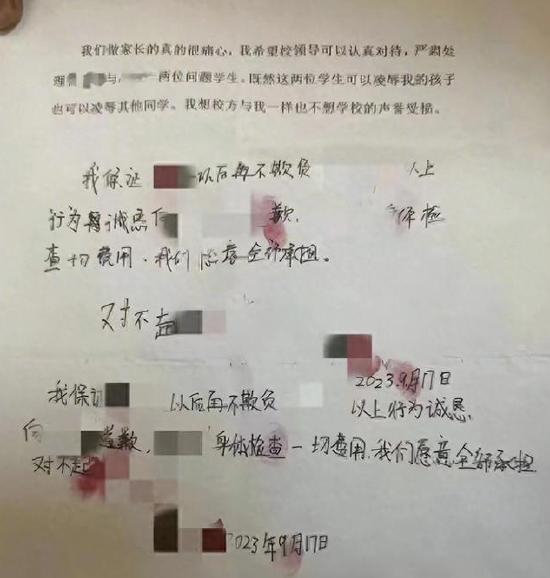 我们做家长的真的很痛心，我希望校领导可以认真对待，严肃处
理 与 两位问题学生。既然这两位学生可以凌辱我的孩子
也可以凌辱其他同学。我想校方与我一样也不想学校的声誉受损。
我保证 以后再不欺负 以上
行为 诚恳 歉， 体检
查一切费用，我们愿意全部承担。
对不起
2023.9月17日
我保证 以后再不欺负 以上行为诚恳
向 道歉， 身体检查一切费用，我们愿意全部承担
对不起
2023年9月17日